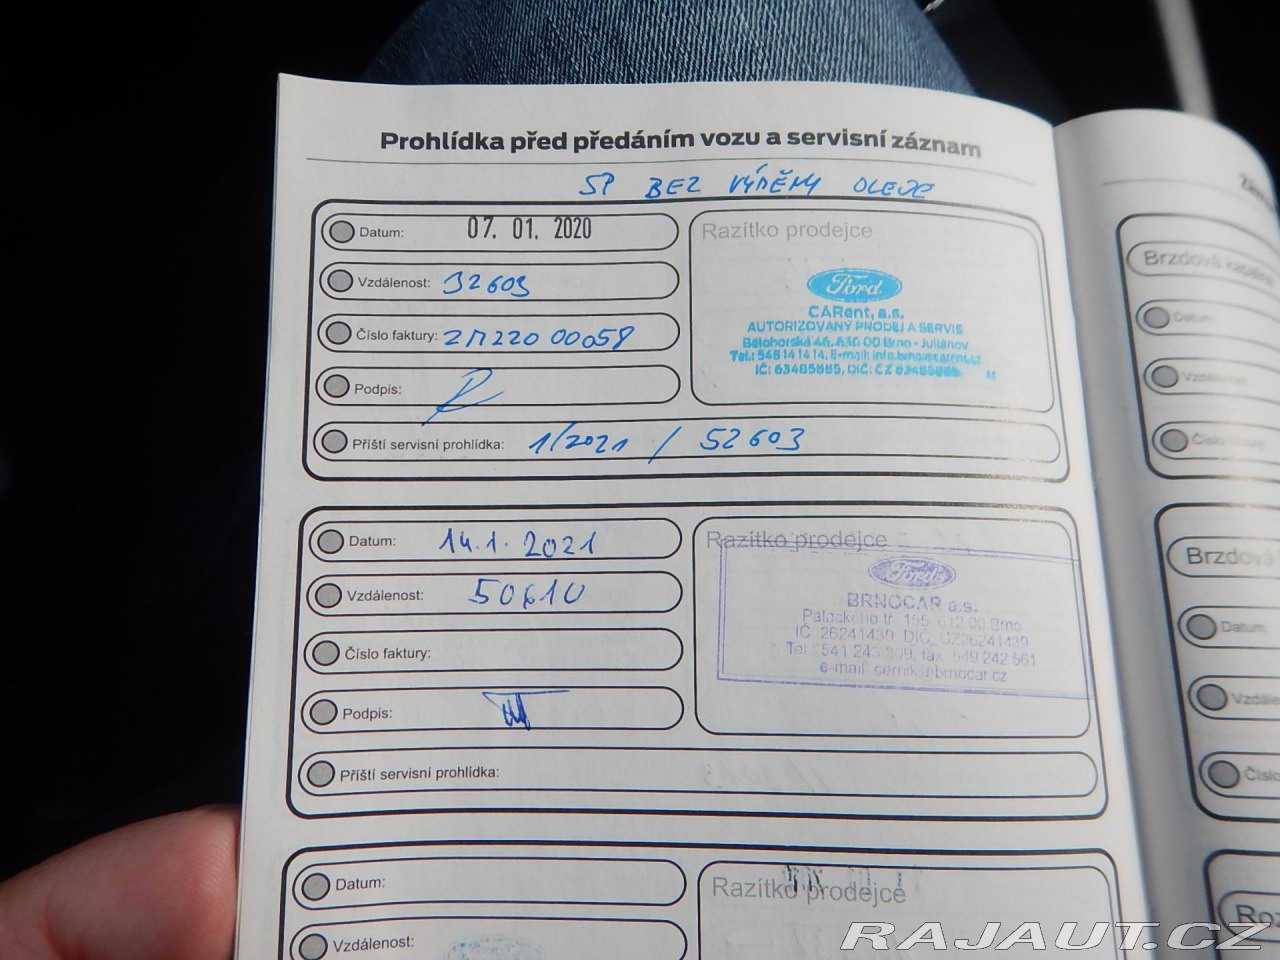 Prohlídka před předáním vozu a servisní záznam
SP BEZ VÝMĚNY OLEJE
Datum: 07. 01. 2020
Razítko prodejce
Vzdálenost: 32603
Číslo faktury: ZM220 00058
Podpis:
Ford
CARent, a.s.
AUTORIZOVANÝ PRODEJ A SERVIS
Bělohorská 46, 636 00 Brno - Juliánov
Tel.: 548 14 14 14, E-mail: info.brno@carent.cz
IČ: 63485885, DIČ: CZ 63485885
Příští servisní prohlídka: 1/2021 / 52603
Datum: 14.1. 2021
Razítko prodejce
Vzdálenost: 50610
Číslo faktury:
Podpis:
Ford
BRNOCAR a.s.
Palackého tř. 155, 612 00 Brno
IČ: 26241439, DIČ: CZ26241439
Tel.: 541 243 809, fax: 549 242 561
e-mail: cernik@brnocar.cz
Příští servisní prohlídka:
Datum:
Razítko prodejce
Vzdálenost:
Brzdová kapalina
Datum:
Číslo
Brzdová
Datum:
RAJAUT.CZ